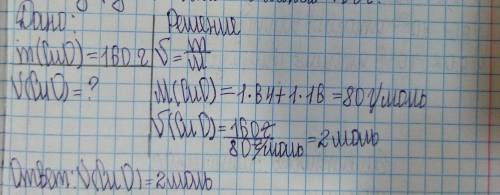 Дано:
Решение
m(CuO)=160 г
ν=m/M
ν(CuO)=?
M(CuO)=1·64+1·16=80 г/моль
ν(CuO)=160г/80 г/моль=2 моль
Ответ: ν(CuO)=2 моль